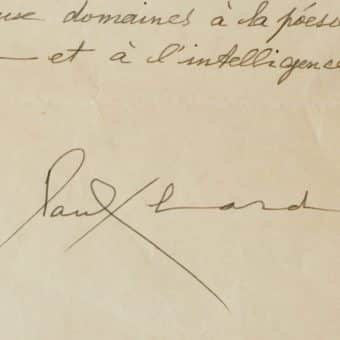 domaines à la poési
et à l'intelligence
Paul Eluard